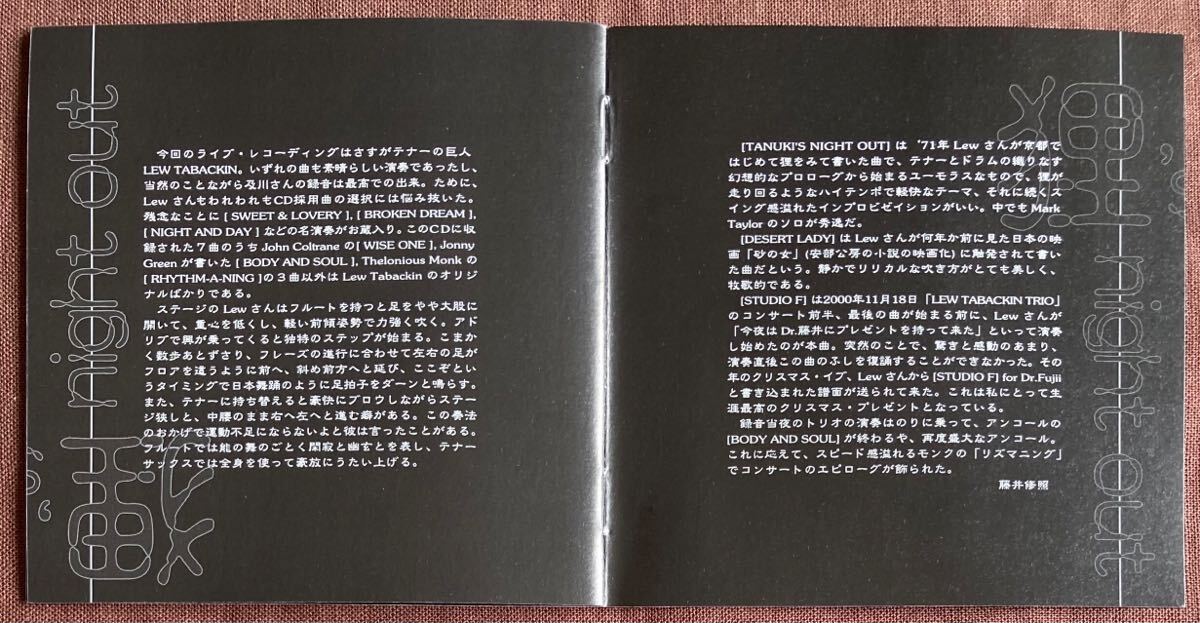 今回のライブ・レコーディングはさすがテナーの巨人
LEW TABACKIN。いずれの曲も素晴らしい演奏であったし、
当然のことながら及川さんの録音は最高での出来。ために、
Lewさんもわれわれも CD採用曲の選択には悩み抜いた。
残念なことに [ SWEET & LOVERY ], [ BROKEN DREAM ],
[ NIGHT AND DAY ] などの名演奏がお蔵入り。このCDに収
録された７曲のうち John Coltrane の [ WISE ONE ], Jonny
Green が書いた [ BODY AND SOUL ], Thelonious Monk の
[ RHYTHM-A-NING ] の３曲以外は Lew Tabackin のオリジ
ナルばかりである。
ステージの Lew さんはフルートを持つと足をやや大股に
開いて、重心を低くし、軽い前傾姿勢で力強く吹く。アド
リブで興が乗ってくると独特のステップが始まる。こまか
く散歩あとずさり、フレーズの進行に合わせて左右の足が
フロアを這うように前へ、斜め前方へと延び、ここぞとい
うタイミングで日本舞踊のように足拍子をダーンと鳴らす。
また、テナーに持ち替えると豪快にブロウしながらステー
ジ狭しと、中腰のまま右へ左へと進む癖がある。この奏法
のおかげで運動不足にならないよと彼は言ったことがある。
フルートでは能の舞のごとく閑寂と幽玄とを表し、テナー
サックスでは全身を使って豪放にうたい上げる。
night out
[TANUKI'S NIGHT OUT] は '71年 Lew さんが京都で
はじめて狸をみて書いた曲で、テナーとドラムの織りなす
幻想的なプロローグから始まるユーモラスなもので、狸が
走り回るようなハイテンポで軽快なテーマ、それに続くス
イング感溢れたインプロビゼイションがいい。中でも Mark
Taylor のソロが秀逸だ。
[DESERT LADY] は Lew さんが何年か前に見た日本の映
画「砂の女」(安部公房の小説の映画化) に触発されて書い
た曲だという。静かでリリカルな吹き方がとても美しく、
牧歌的である。
[STUDIO F] は2000年11月18日「LEW TABACKIN TRIO」
のコンサート前半、最後の曲が始まる前に、Lew さんが
「今夜は Dr.藤井にプレゼントを持って来た」といって演奏
し始めたのが本曲。突然のことで、驚きと感動のあまり、
演奏直後この曲のふしを復誦することができなかった。その
年のクリスマス・イブ、Lew さんから [STUDIO F] for Dr.Fujii
と書き込まれた譜面が送られて来た。これは私にとって生
涯最高のクリスマス・プレゼントとなっている。
録音当夜のトリオの演奏はのりに乗って、アンコールの
[BODY AND SOUL] が終わるや、再度盛大なアンコール。
これに応えて、スピード感溢れるモンクの「リズマニング」
でコンサートのエピローグが飾られた。
藤井修照
night out